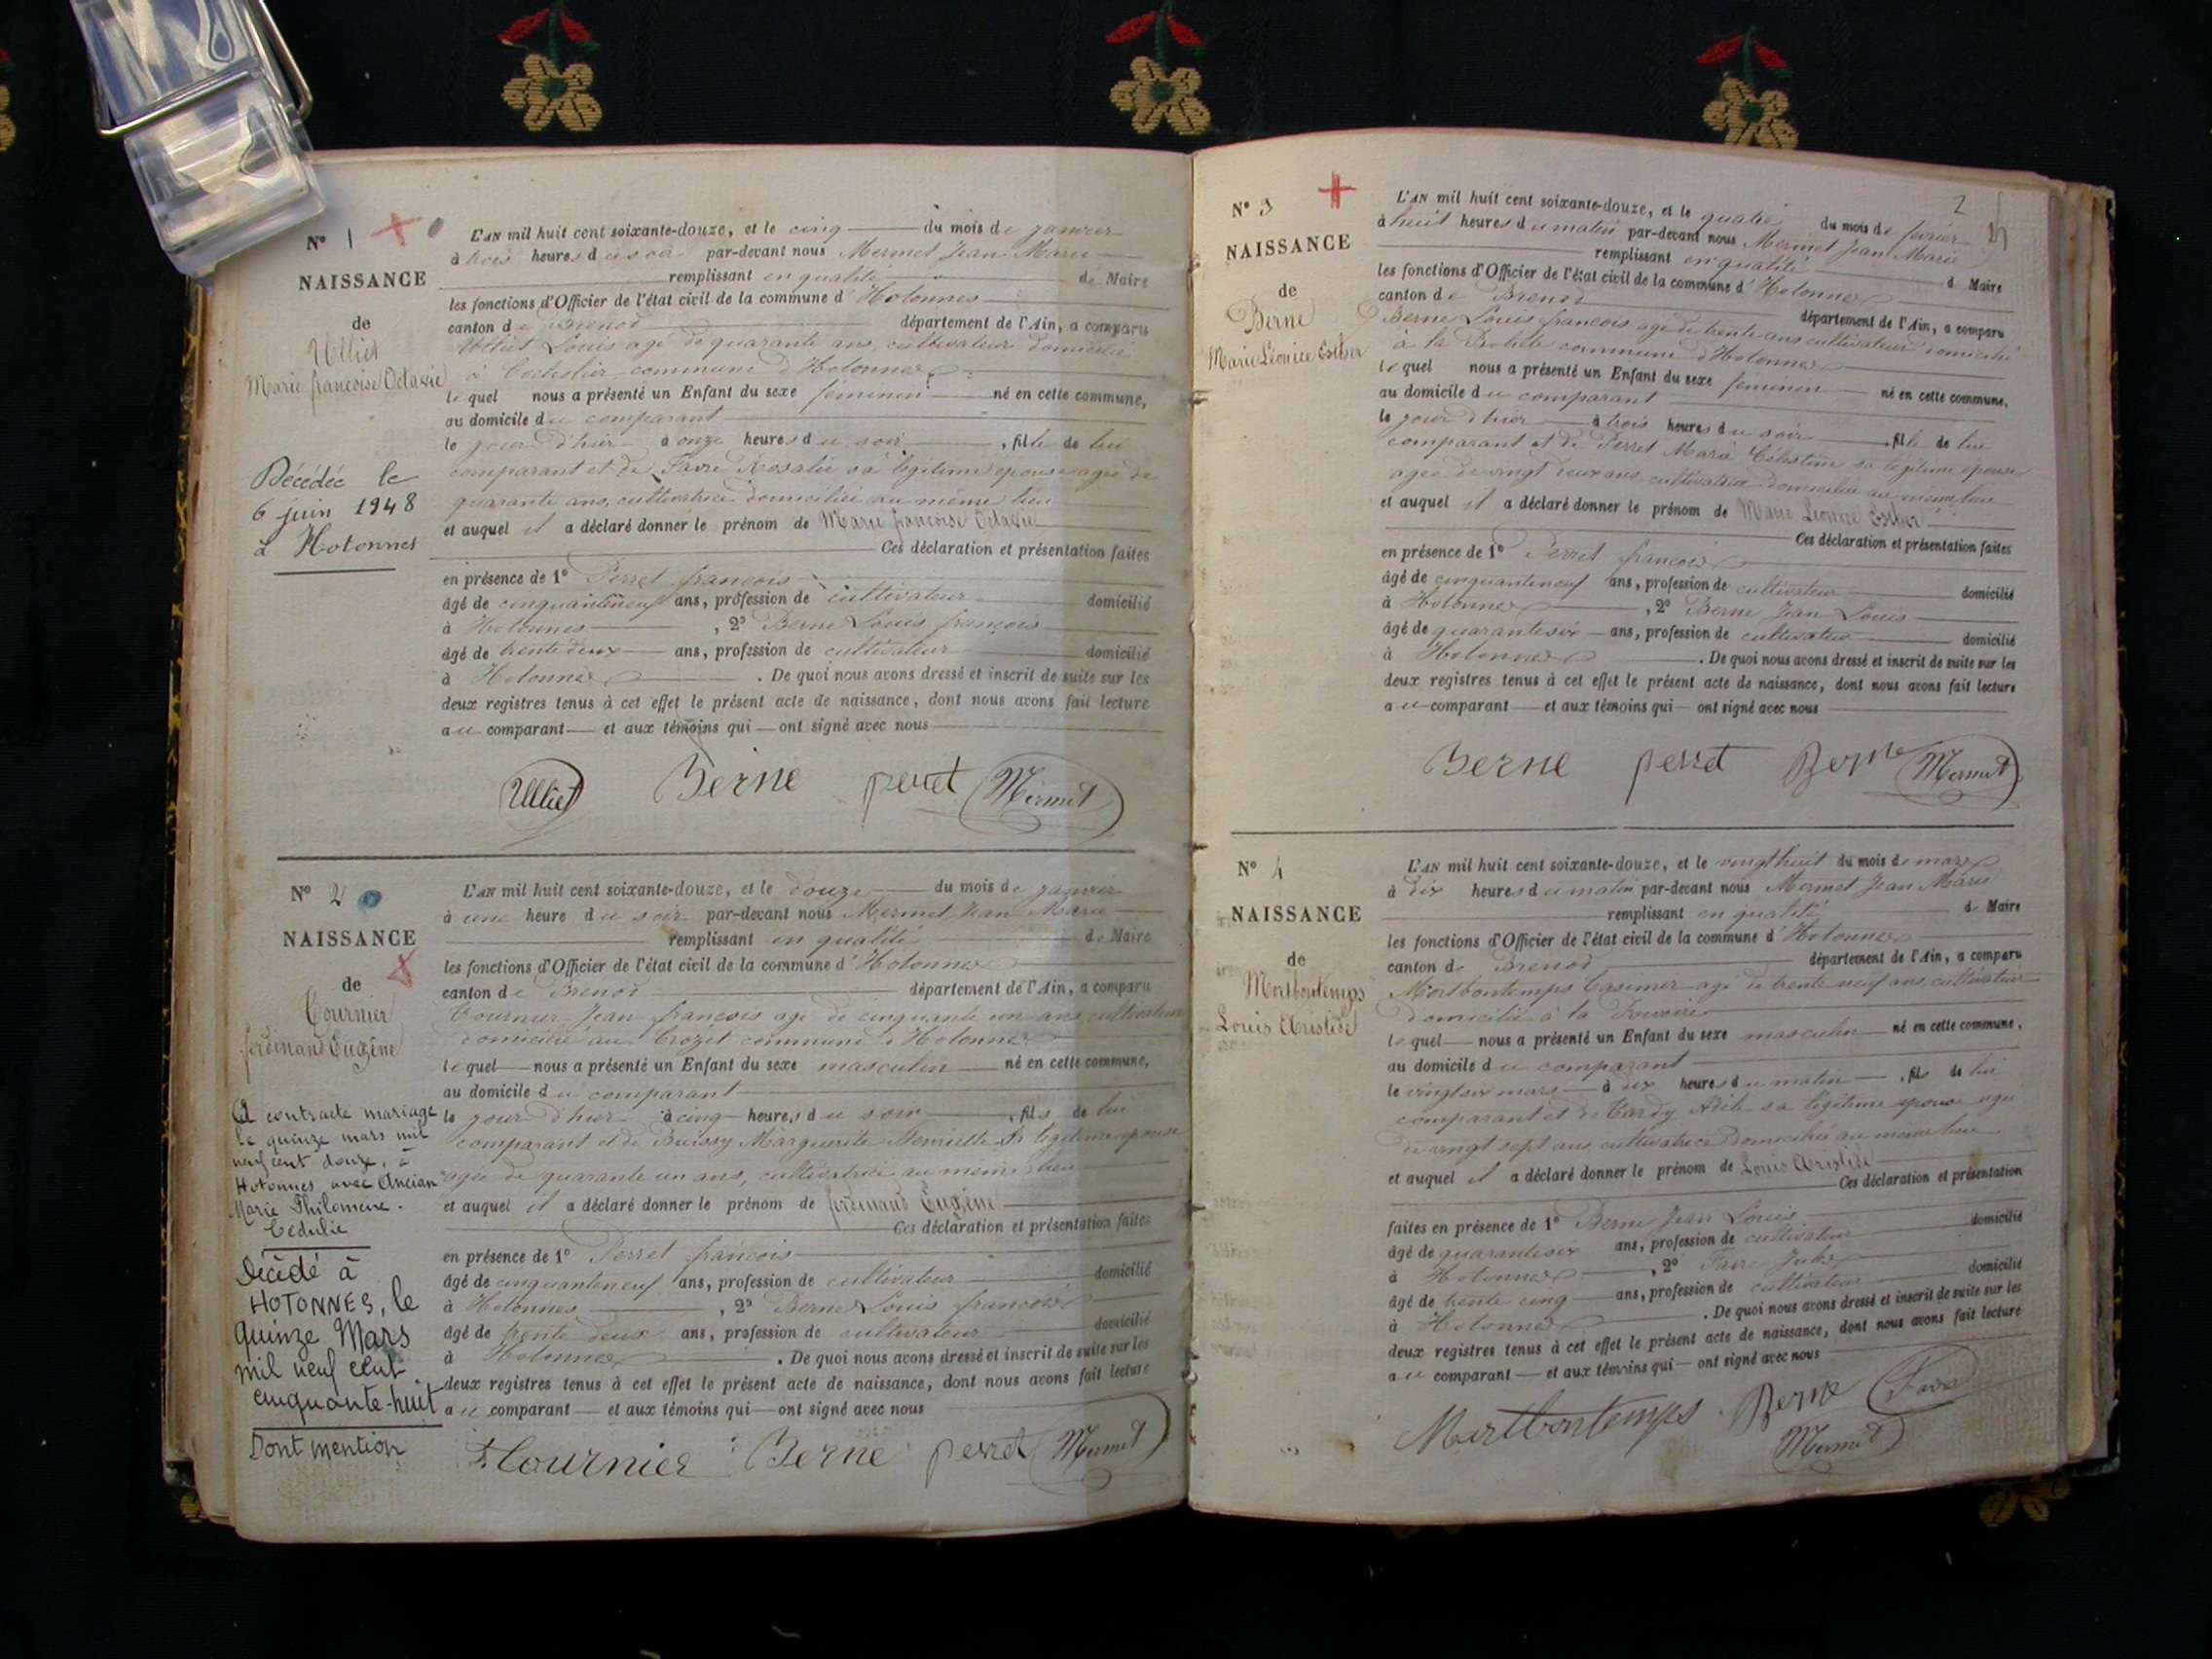 N° 1
NAISSANCE
de
Ulliet
Marie françoise Octavie
Décédée le
6 juin 1948
à Hotonnes
L'AN mil huit cent soixante-douze, et le cinq du mois de janvier
à trois heures du soir par-devant nous Mermet Jean Marie
remplissant en qualité de Maire
les fonctions d'Officier de l'état civil de la commune d'Hotonnes
canton de Brenod département de l'Ain, a comparu
Ulliet Louis agé de quarante ans, cultivateur domicilié
à commune d'Hotonnes
lequel nous a présenté un Enfant du sexe féminin né en cette commune,
au domicile du comparant
le jour d'hier à onze heures du soir, fille de lui
comparant et de Favre Rosalie sa légitime épouse agée de
quarante ans, cultivatrice domiciliée au même lieu
et auquel il a déclaré donner le prénom de Marie françoise Octavie
Ces déclaration et présentation faites
en présence de 1° Perret françois
âgé de cinquanteneuf ans, profession de cultivateur domicilié
à Hotonnes, 2° Berne Louis françois
âgé de trente deux ans, profession de cultivateur domicilié
à Hotonnes. De quoi nous avons dressé et inscrit de suite sur les
deux registres tenus à cet effet le présent acte de naissance, dont nous avons fait lecture
au comparant et aux témoins qui ont signé avec nous
Ulliet Berne perret Mermet
N° 2
NAISSANCE
de
Tournier
ferdinand Eugène
A contracté mariage
le quinze mars mil
neuf cent douze, à
Hotonnes avec Ancian
Marie Philomène.
Cedulie
Décédé à
HOTONNES, le
quinze Mars
mil neuf cent
cinquante-huit
Dont mention
L'AN mil huit cent soixante-douze, et le douze du mois de janvier
à une heure du soir par-devant nous Mermet Jean Marie
remplissant en qualité de Maire
les fonctions d'Officier de l'état civil de la commune d'Hotonnes
canton de Brenod département de l'Ain, a comparu
Tournier Jean françois agé de cinquante un ans cultivateur
domicilié au Crozet commune d'Hotonnes
lequel nous a présenté un Enfant du sexe masculin né en cette commune,
au domicile du comparant
le jour d'hier à cinq heures du soir, fils de lui
comparant et de Buissy Marguerite Henriette sa légitime épouse
agée de quarante un ans, cultivatrice au même lieu
et auquel il a déclaré donner le prénom de ferdinand Eugène
Ces déclaration et présentation faites
en présence de 1° Perret françois
âgé de cinquanteneuf ans, profession de cultivateur domicilié
à Hotonnes, 2° Berne Louis françois
âgé de trente deux ans, profession de cultivateur domicilié
à Hotonnes. De quoi nous avons dressé et inscrit de suite sur les
deux registres tenus à cet effet le présent acte de naissance, dont nous avons fait lecture
au comparant et aux témoins qui ont signé avec nous
Tournier Berne perret Mermet
2
N° 3
NAISSANCE
de
Berne
Marie Léonice Esther
L'AN mil huit cent soixante-douze, et le quatre du mois de fevrier
à huit heures du matin par-devant nous Mermet Jean Marie
remplissant en qualité d Maire
les fonctions d'Officier de l'état civil de la commune d'Hotonnes
canton de Brenod département de l'Ain, a comparu
Berne Louis francois agé de trente ans cultivateur domicilié
à la commune d'Hotonnes
lequel nous a présenté un Enfant du sexe feminin né en cette commune,
au domicile du comparant
le jour d'hier à trois heures du soir, fille de lui
comparant et de Perret Marie Célestine sa légitime épouse
agée de vingt deux ans, cultivatrice domiciliée au même lieu
et auquel il a déclaré donner le prénom de Marie Léonice Esther
Ces déclaration et présentation faites
en présence de 1° Perret francois
âgé de cinquanteneuf ans, profession de cultivateur domicilié
à Hotonnes, 2° Berne Jean Louis
âgé de quarantesix ans, profession de cultivateur domicilié
à Hotonnes. De quoi nous avons dressé et inscrit de suite sur les
deux registres tenus à cet effet le présent acte de naissance, dont nous avons fait lecture
au comparant et aux témoins qui ont signé avec nous
Berne perret Berne Mermet
N° 4
NAISSANCE
de
Mortbontemps
Louis Aristide
L'AN mil huit cent soixante-douze, et le vingthuit du mois de mars
à dix heures du matin par-devant nous Mermet Jean Marie
remplissant en qualité de Maire
les fonctions d'Officier de l'état civil de la commune d'Hotonnes
canton de Brenod département de l'Ain, a comparu
Mortbontemps Casimir agé de trente neuf ans, cultivateur
domicilié à la
lequel nous a présenté un Enfant du sexe masculin né en cette commune,
au domicile du comparant
le vingtsix mars à dix heures du matin, fils de lui
comparant et de Tardy Adèle sa légitime épouse agée
de vingt sept ans, cultivatrice domiciliée au même lieu
et auquel il a déclaré donner le prénom de Louis Aristide
Ces déclaration et présentation
faites en présence de 1° Berne Jean Louis
âgé de quarantesix ans, profession de cultivateur domicilié
à Hotonnes, 2° Favre Jules
âgé de trente cinq ans, profession de cultivateur domicilié
à Hotonnes. De quoi nous avons dressé et inscrit de suite sur les
deux registres tenus à cet effet le présent acte de naissance, dont nous avons fait lecture
au comparant et aux témoins qui ont signé avec nous
Martbontemps Berne Favre
Mermet